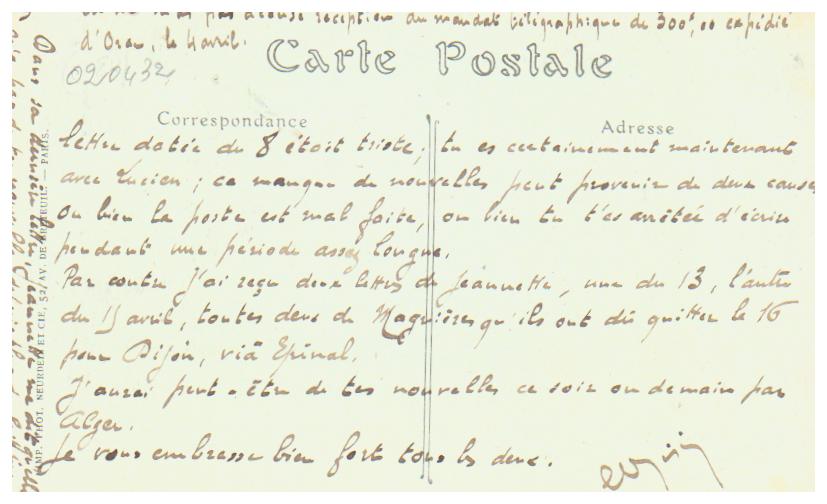 pas accusé réception du mandat télégraphique de 300f,00 expédié
d'Oran, le 4 avril.
020432
Carte Postale
Correspondance
Adresse
lettre datée du 8 était triste; tu es certainement maintenant
avec Lucien; ce manque de nouvelles peut provenir de deux causes
ou bien la poste est mal faite, ou bien tu t'es arrêtée d'écrire
pendant une période assez longue.
Par contre j'ai reçu deux lettres de Jeannette, une du 13, l'autre
du 15 avril, toutes deux de Magnières qu'ils ont dû quitter le 16
pour Dijon, viâ Epinal.
J'aurai peut-être de tes nouvelles ce soir ou demain par
Alger.
Je vous embrasse bien fort tous les deux.
Dans sa dernière lettre, Jeannette me dit
IMP. PHOT. NEURDEIN ET CIE, 52, AV. DE BRETEUIL. — PARIS.